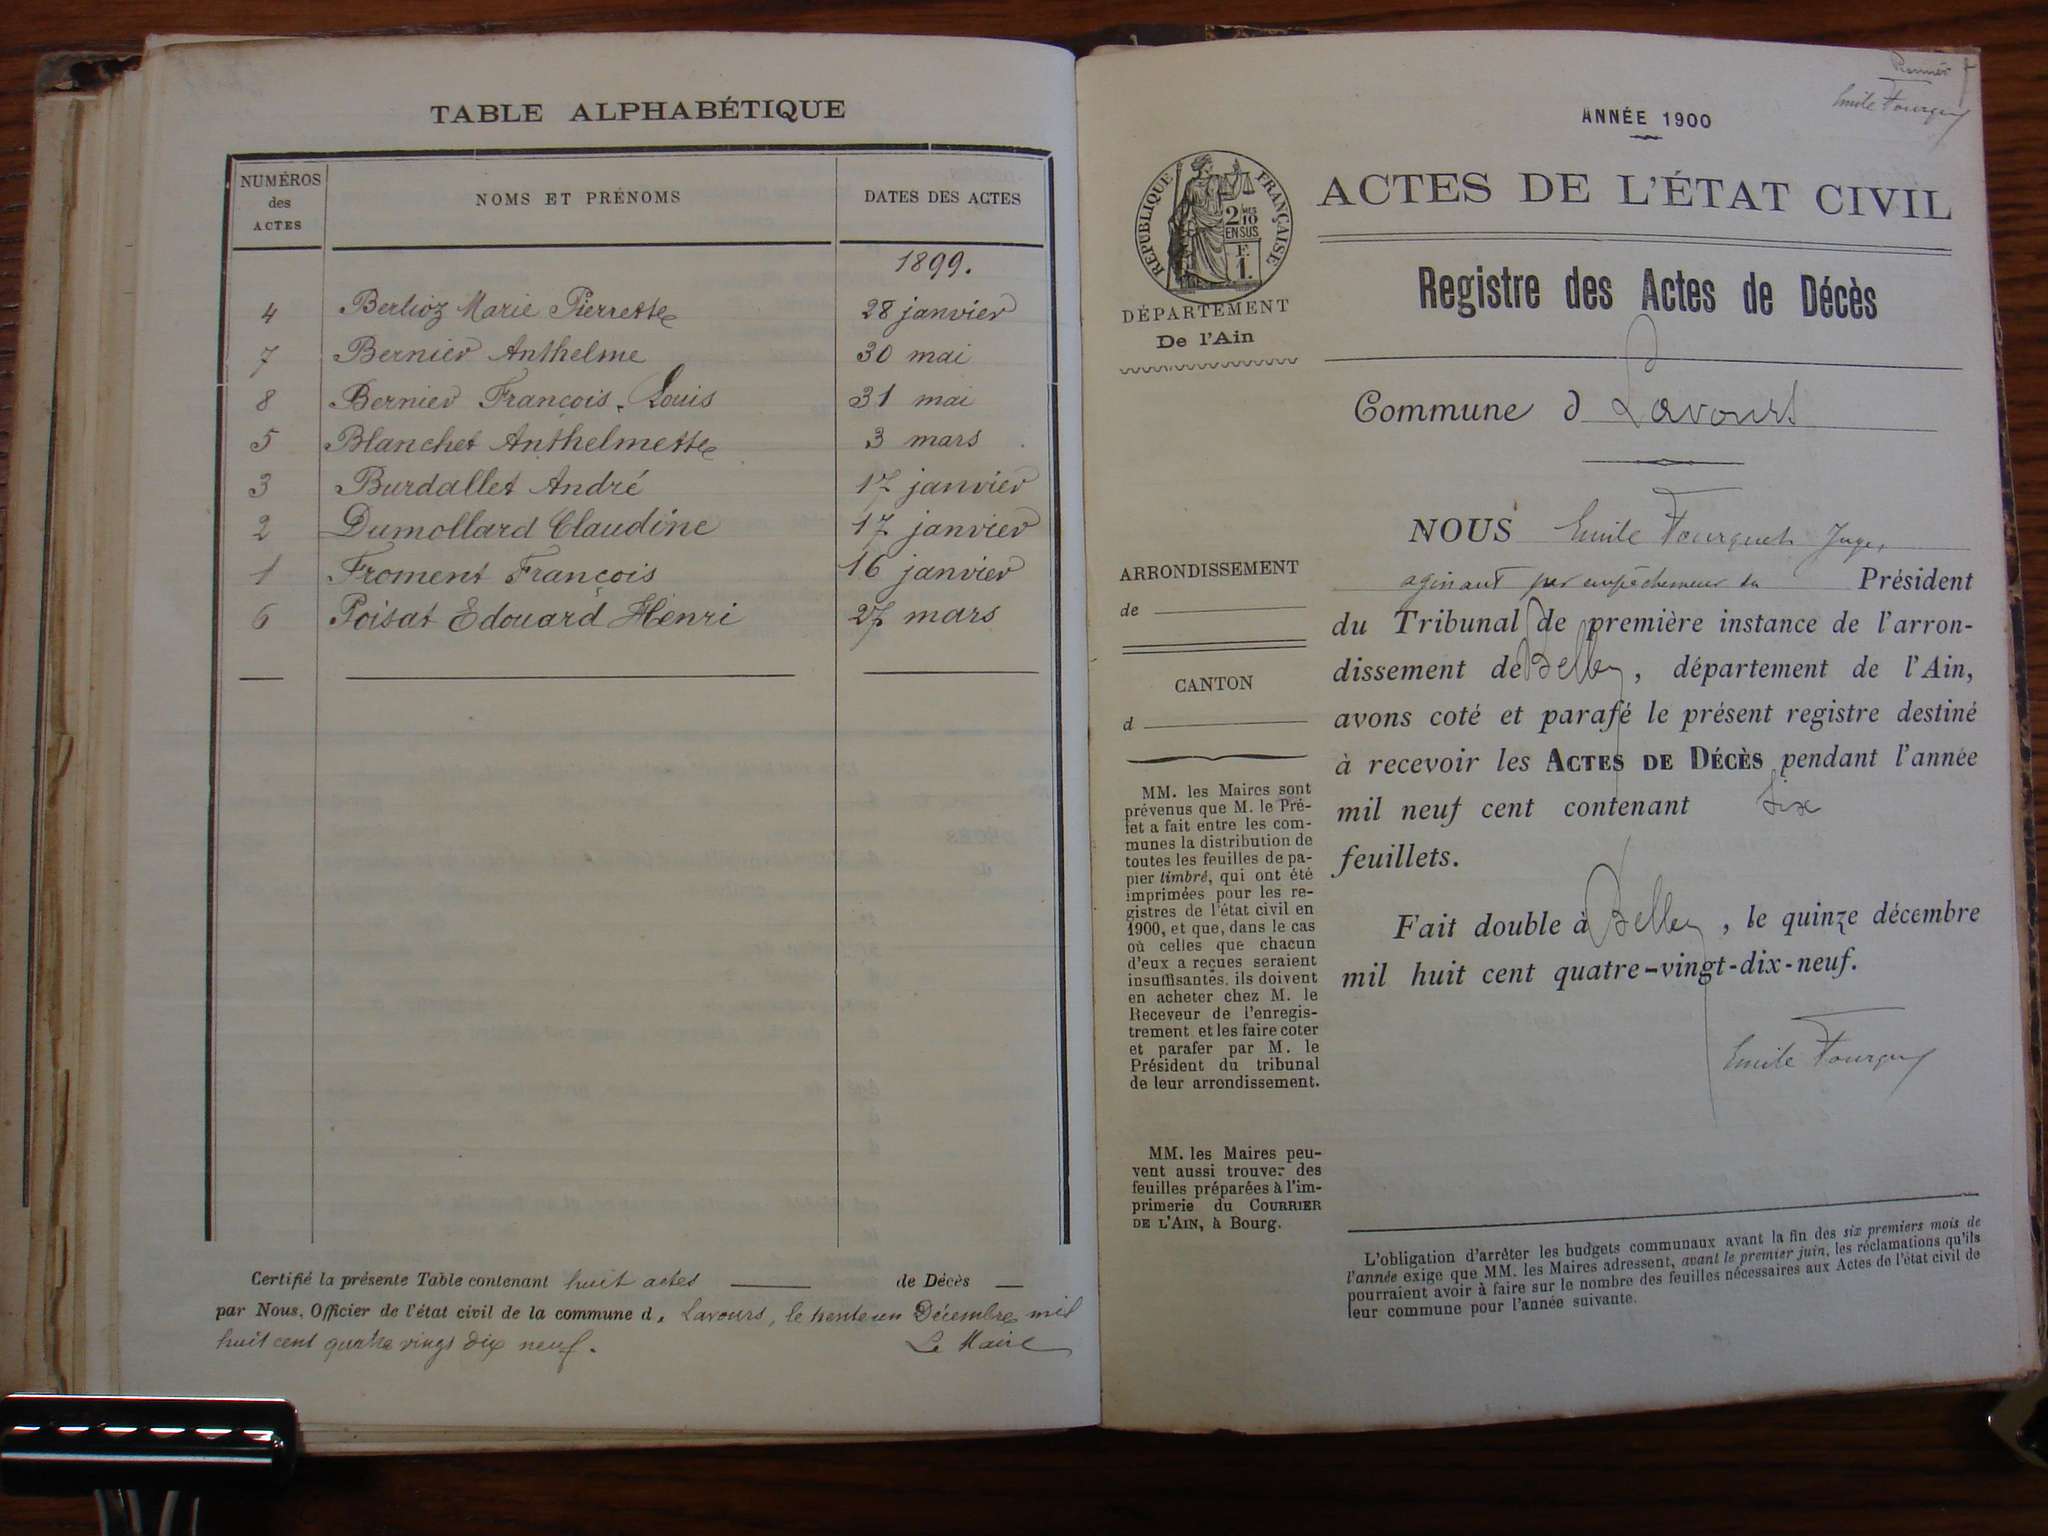 TABLE ALPHABÉTIQUE
NUMÉROS des ACTES NOMS ET PRÉNOMS DATES DES ACTES
1899.
4 Berlioz Marie Pierrette 28 janvier
7 Bernier Anthelme 30 mai
8 Bernier François Louis 31 mai
5 Blanchet Anthelmette 3 mars
3 Burdallet André 17 janvier
2 Dumollard Claudine 17 janvier
1 Froment François 16 janvier
6 Poisat Edouard Henri 27 mars
Certifié la présente Table contenant huit actes de Décès
par Nous, Officier de l'état civil de la commune d, Lavours, le trente un Décembre mil
huit cent quatre vingt dix neuf.
Le Maire
Premier
Emile Fourquet
ANNÉE 1900
RÉPUBLIQUE FRANÇAISE
2 MES
10
EN SUS
F.
1.
ACTES DE L'ÉTAT CIVIL
DÉPARTEMENT
De l'Ain
Registre des Actes de Décès
Commune d Lavours
ARRONDISSEMENT
de
CANTON
d
MM. les Maires sont
prévenus que M. le Pré-
fet a fait entre les com-
munes la distribution de
toutes les feuilles de pa-
pier timbré, qui ont été
imprimées pour les re-
gistres de l'état civil en
1900, et que, dans le cas
où celles que chacun
d'eux a reçues seraient
insuffisantes, ils doivent
en acheter chez M. le
Receveur de l'enregis-
trement et les faire coter
et parafer par M. le
Président du tribunal
de leur arrondissement.
MM. les Maires peu-
vent aussi trouver des
feuilles préparées à l'im-
primerie du COURRIER
DE L'AIN, à Bourg.
NOUS Emile Fourquet Juge,
agissant par empêchement du Président
du Tribunal de première instance de l'arron-
dissement de Belley, département de l'Ain,
avons coté et parafé le présent registre destiné
à recevoir les ACTES DE DÉCÈS pendant l'année
mil neuf cent contenant six
feuillets.
Fait double à Belley, le quinze décembre
mil huit cent quatre-vingt-dix-neuf.
Emile Fourquet
L'obligation d'arrêter les budgets communaux avant la fin des six premiers mois de
l'année exige que MM. les Maires adressent, avant le premier juin, les réclamations qu'ils
pourraient avoir à faire sur le nombre des feuilles nécessaires aux Actes de l'état civil de
leur commune pour l'année suivante.